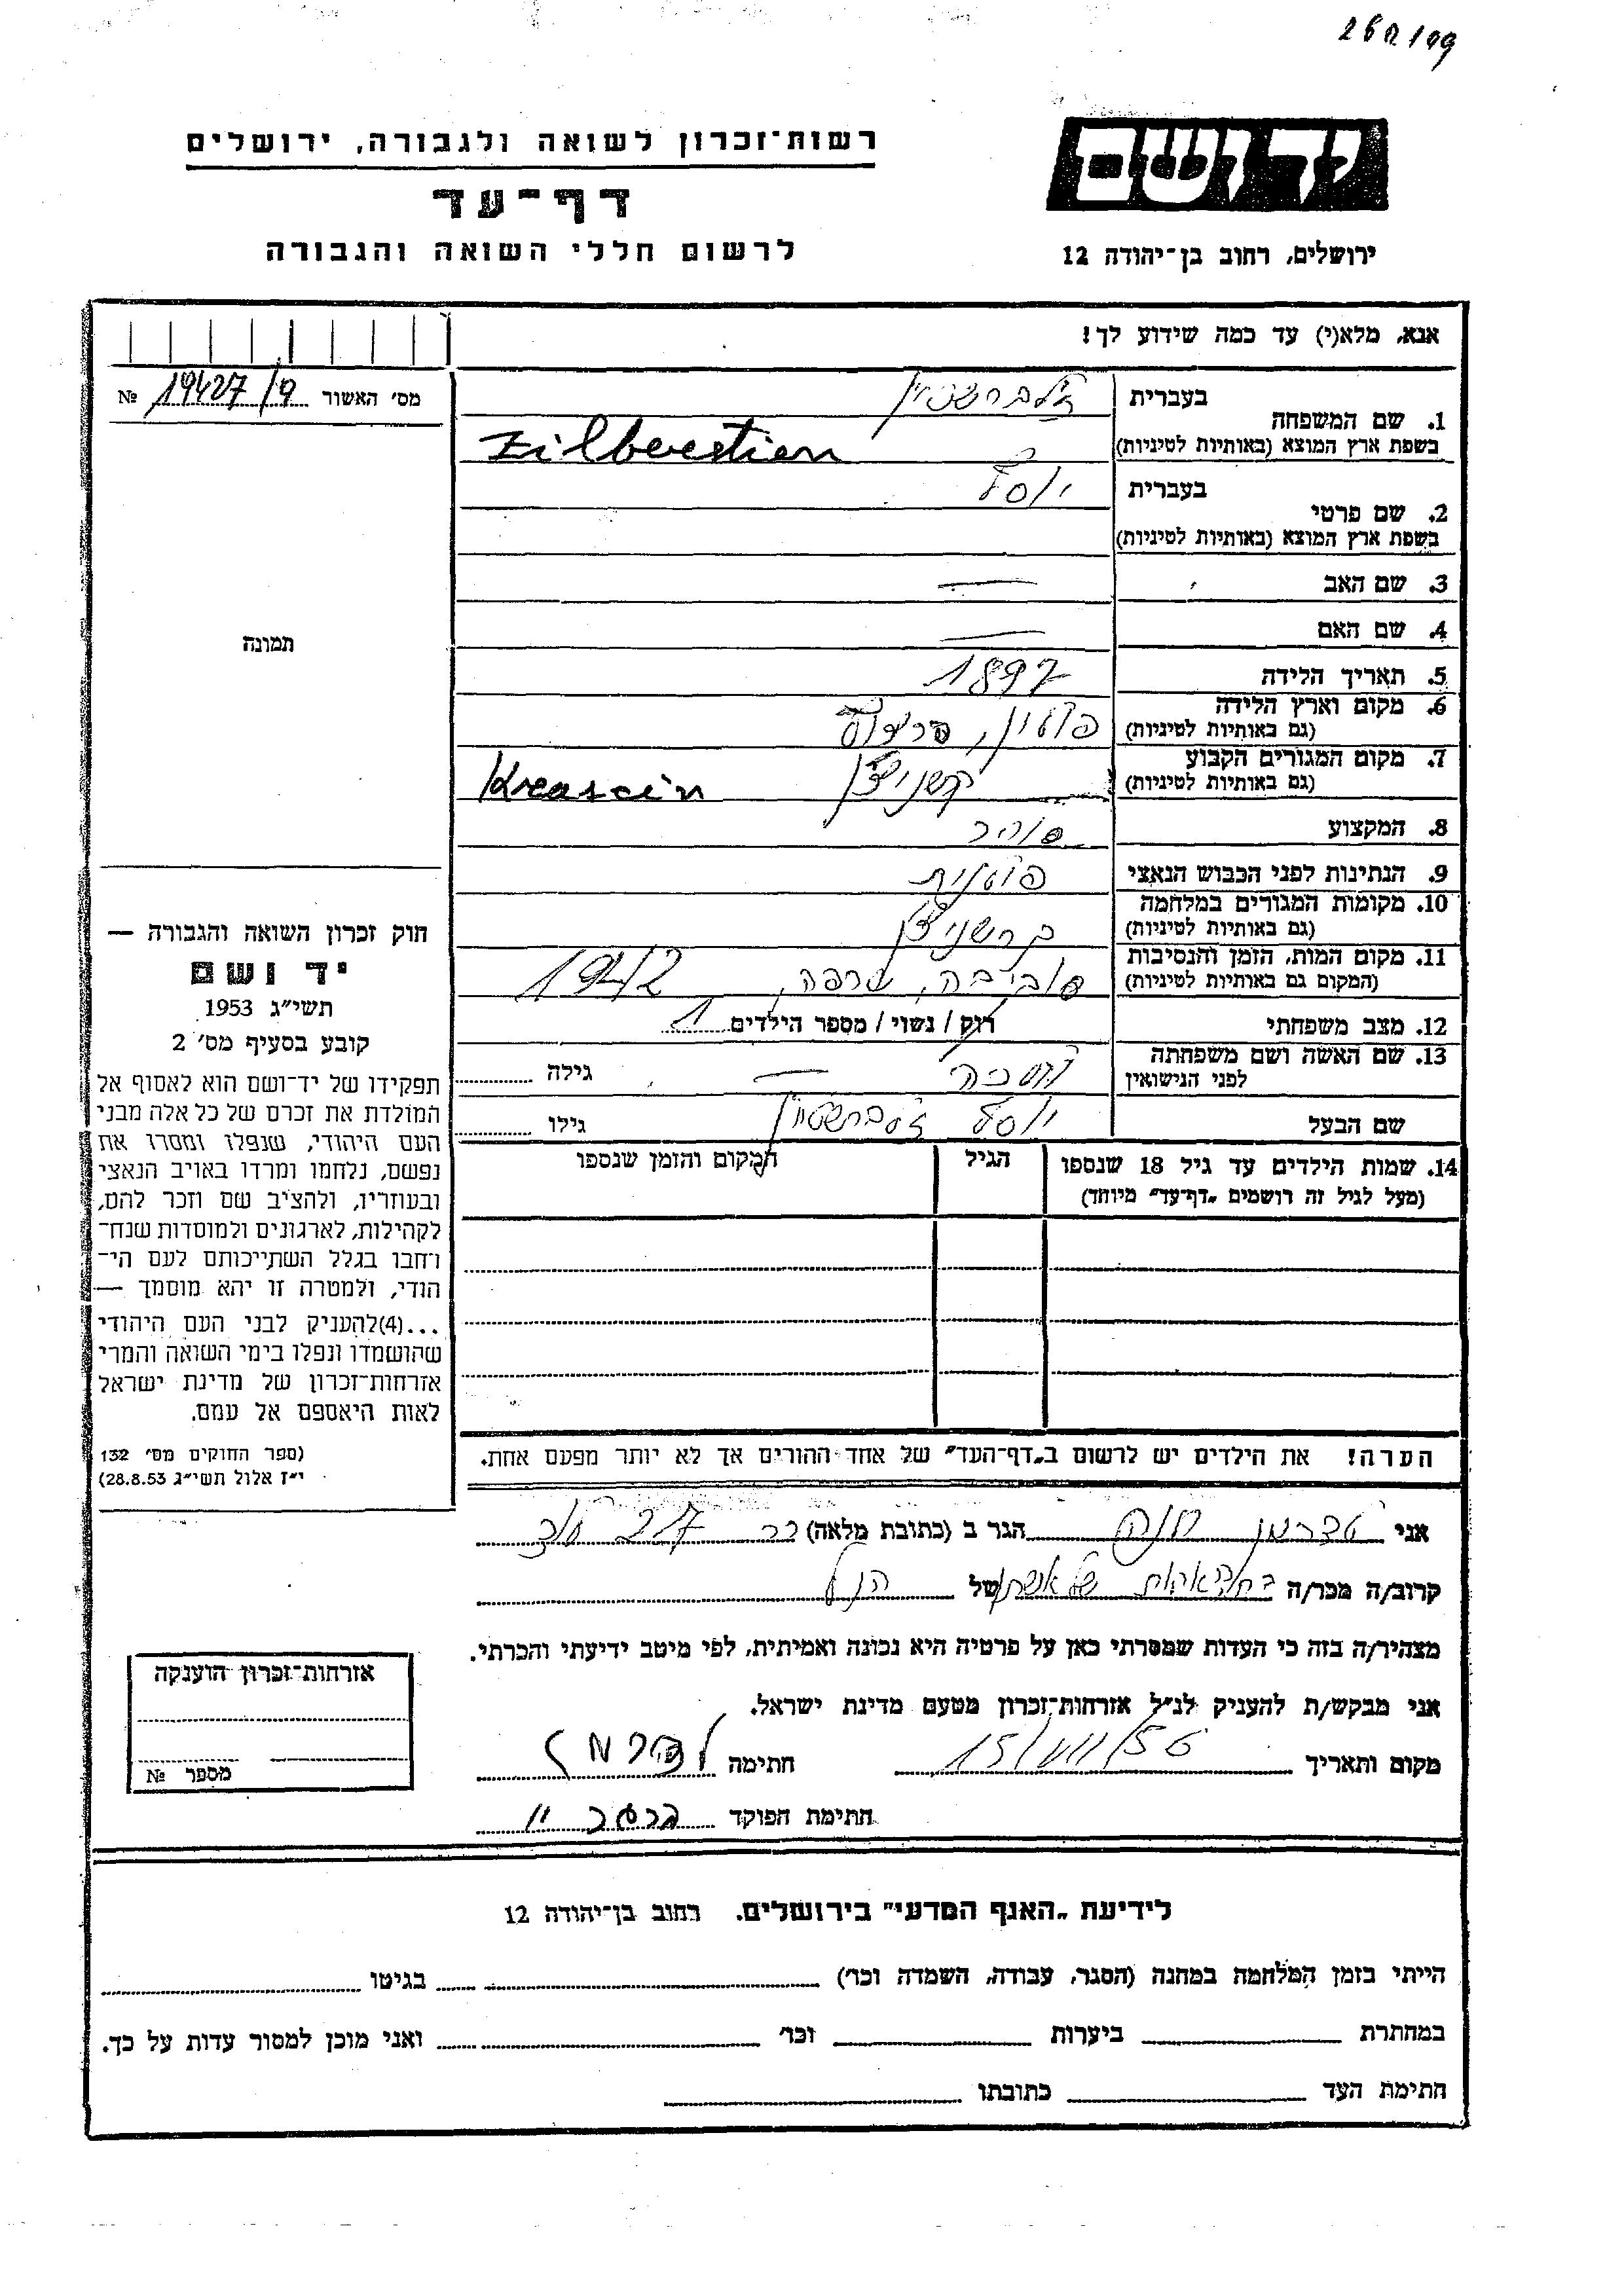 רשות־זכרון לשואה ולגבורה, ירושלים
דף־עד
לרשום חללי השואה והגבורה
יד ושם
ירושלים, רחוב בן־יהודה 12
אנא, מלא(י) עד כמה שידוע לך!
מס׳ האשור 19427/9 №
1. שם המשפחה
בעברית זילברשטיין
בשפת ארץ המוצא (באותיות לטיניות) Zilberstien
2. שם פרטי
בעברית יוסף
בשפת ארץ המוצא (באותיות לטיניות)
3. שם האב —
4. שם האם —
5. תאריך הלידה 1897
6. מקום וארץ הלידה
(גם באותיות לטיניות) פולין,
7. מקום המגורים הקבוע
(גם באותיות לטיניות)
8. המקצוע סוחר
9. הנתינות לפני הכבוש הנאצי פולנית
10. מקומות המגורים במלחמה
(גם באותיות לטיניות)
11. מקום המות, הזמן והנסיבות
(המקום גם באותיות לטיניות) 1942
12. מצב משפחתי רווק / נשוי / מספר הילדים 1
13. שם האשה ושם משפחתה
לפני הנישואין — גילה
שם הבעל יוסף זילברשטיין גילו
14. שמות הילדים עד גיל 18 שנספו
(מעל לגיל זה רושמים „דף־עד” מיוחד)
הגיל
המקום והזמן שנספו
הערה! את הילדים יש לרשום ב„דף־העד” של אחד ההורים אך לא יותר מפעם אחת.
תמונה
חוק זכרון השואה והגבורה —
יד ושם
תשי״ג 1953
קובע בסעיף מס׳ 2
תפקידו של יד־ושם הוא לאסוף אל
המולדת את זכרם של כל אלה מבני
העם היהודי, שנפלו ומסרו את
נפשם, נלחמו ומרדו באויב הנאצי
ובעוזריו, ולהציב שם וזכר להם,
לקהילות, לארגונים ולמוסדות שנח־
רחבו בגלל השתייכותם לעם הי־
הודי, ולמטרה זו יהא מוסמך —
...(4)להעניק לבני העם היהודי
שהושמדו ונפלו בימי השואה והמרי
אזרחות־זכרון של מדינת ישראל
לאות היאספם אל עמם.
(ספר החוקים מס׳ 132
י״ז אלול תשי״ג 28.8.53)
אני חנה הגר ב (כתובת מלאה)
קרוב/ה מכר/ה של הנ״ל
מצהיר/ה בזה כי העדות שמסרתי כאן על פרטיה היא נכונה ואמיתית, לפי מיטב ידיעתי והכרתי.
אני מבקש/ת להעניק לנ״ל אזרחות־זכרון מטעם מדינת ישראל.
מקום ותאריך 15/VII/56 חתימה
חתימת הפוקד
אזרחות־זכרון הוענקה
מספר №
לידיעת „האגף המדעי” בירושלים. רחוב בן־יהודה 12
הייתי בזמן המלחמה במחנה (הסגר, עבודה, השמדה וכו׳) בגיטו
במחתרת ביערות וכו׳ ואני מוכן למסור עדות על כך.
חתימת העד כתובתו